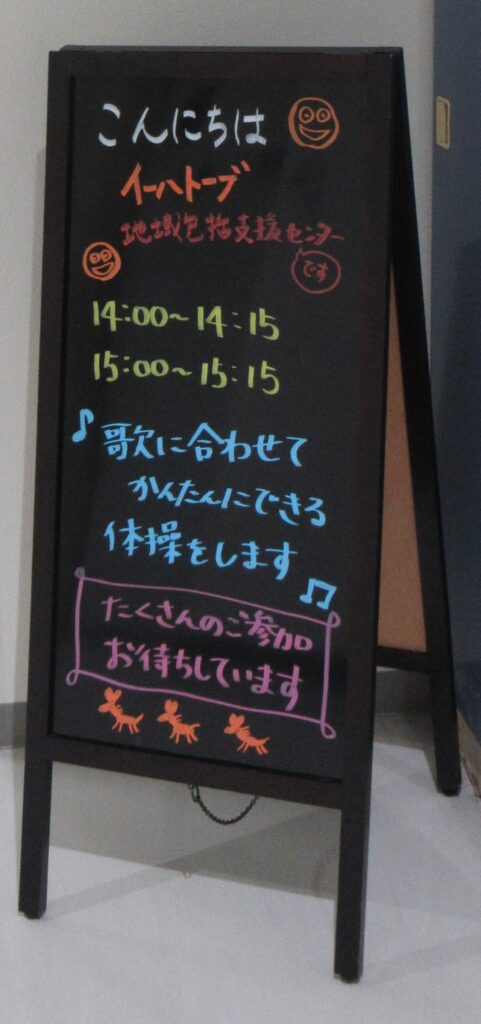 こんにちは
イーハトーブ
地域包括支援センター
です
14:00～14:15
15:00～15:15
歌に合わせて
かんたんにできる
体操をします
たくさんのご参加
お待ちしています